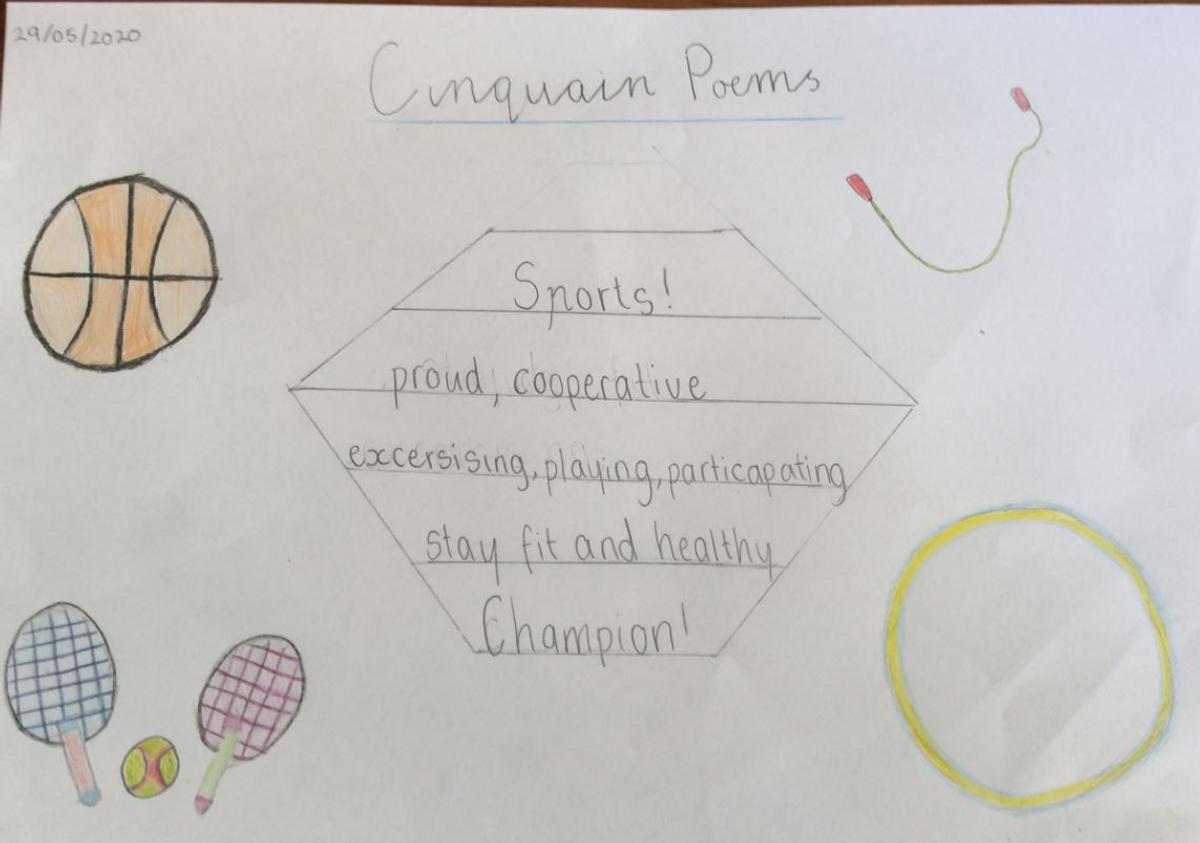 29/05/2020
Cinquain Poems
Sports!
proud, cooperative
excersising, playing, particapating
stay fit and healthy
Champion!